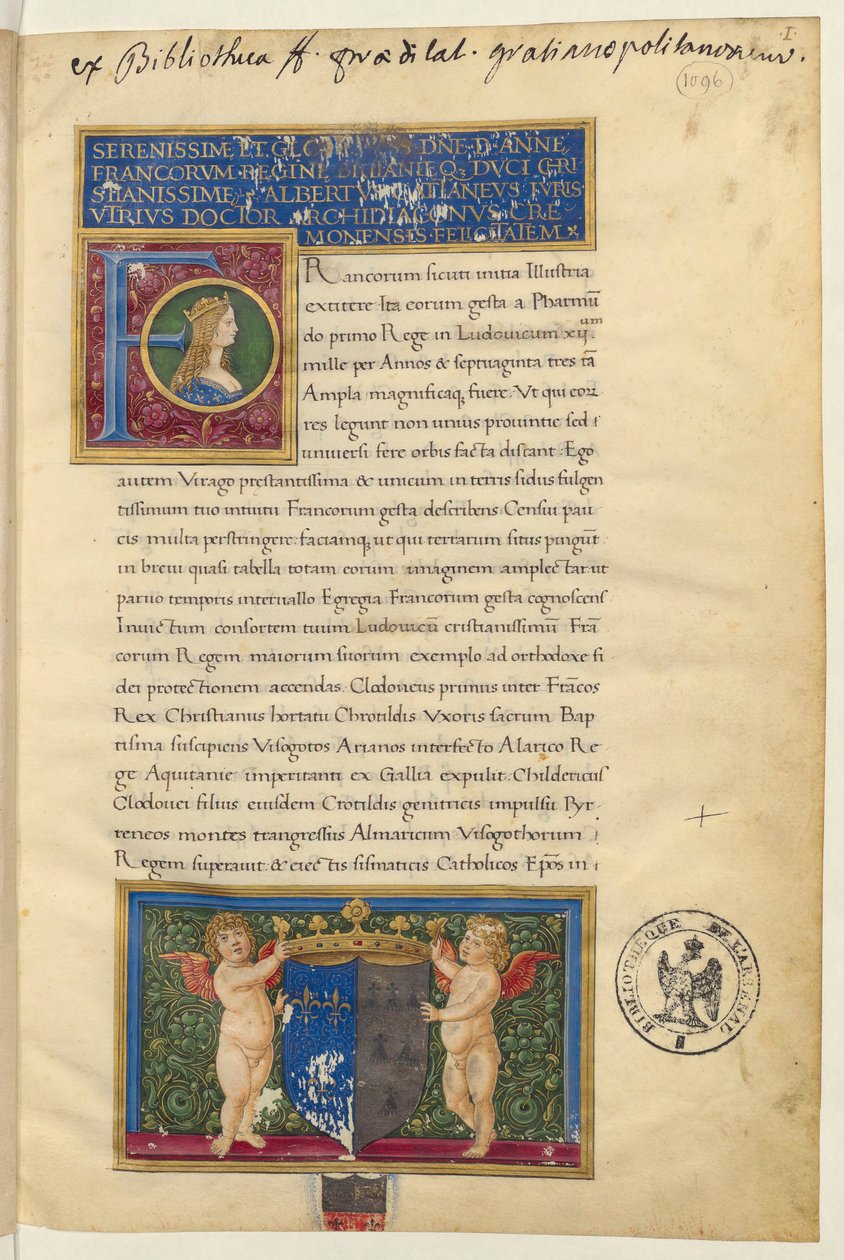 ex Bibliotheca ff. prædicat. gratianopolitanorum.
.I.
1096
SERENISSIMÆ ET DNE D ANNE
FRANCORVM REGINE BRITANIE Qꝫ DVCI CHRI
STIANISSIME ALBERTVS CATTANEVS IVRIS
VTRIVS DOCTOR ARCHIDIACONVS CRE
MONENSIS FELICITATEM
F Rancorum sicuti initia Illustria
extitere Ita eorum gesta a Pharmū
do primo Rege in Ludovicum xii.um
mille per Annos & septuaginta tres tā
Ampla magnificaqꝫ fuere. Vt qui eorꝛ
res legunt non unius prouintie sed
uniuersi fere orbis facta discant. Ego
autem Virago prestantissima & unicum in terris sidus fulgen
tissimum tuo intuitu Francorum gesta describens Censui pau
cis multa perstringere. faciamqꝫ ut qui terrarum situs pingūt
in breui quasi tabella totam eorum imaginem amplectar. ut
paruo temporis interuallo Egregia Francorum gesta cognoscens
Inuictum consortem tuum Ludouicū cristianissimū Frā
corum Regem maiorum suorum exemplo ad orthodoxe fi
dei protectionem accendas. Clodoueus primus inter Frācos
Rex Christianus hortatu Chrotildis Vxoris sacrum Bap
tisma suscipiens Visogotos Arianos interfecto Alarico Re
ge Aquitanie imperitanti ex Gallia expulit. Childericus
Clodouei filius eiusdem Crotildis genitricis impulsu Pyr
reneos montes trangressus Almaricum Visogothorum
Regem superauit. & eiectis sismaticis Catholicos Ep̄os in
BIBLIOTHÈQUE DE L'ARSENAL